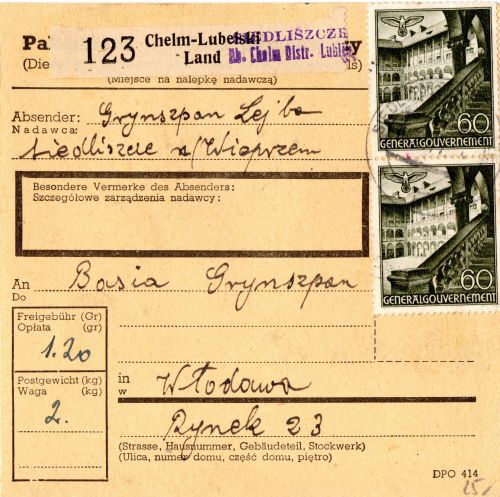 Pa
(Die
123
Chelm-Lubelski
Land
SIEDLISZCZE
Bb. Cholm Distr. Lublin
(Miejsce na nalepkę nadawczą)
Absender: Grynszpan Lejba
Nadawca:
Siedliszcze n/Wieprzem
Besondere Vermerke des Absenders:
Szczegółowe zarządzenia nadawcy:
60
GENERALGOUVERNEMENT
60
GENERALGOUVERNEMENT
An Basia Grynszpan
Do
Freigebühr (Gr)
Opłata (gr)
1.20
Postgewicht (kg)
Waga (kg)
2.
in Włodawa
w
Rynek 23
(Strasse, Hausnummer, Gebäudeteil, Stockwerk)
(Ulica, numer domu, część domu, piętro)
DPO 414
25.-